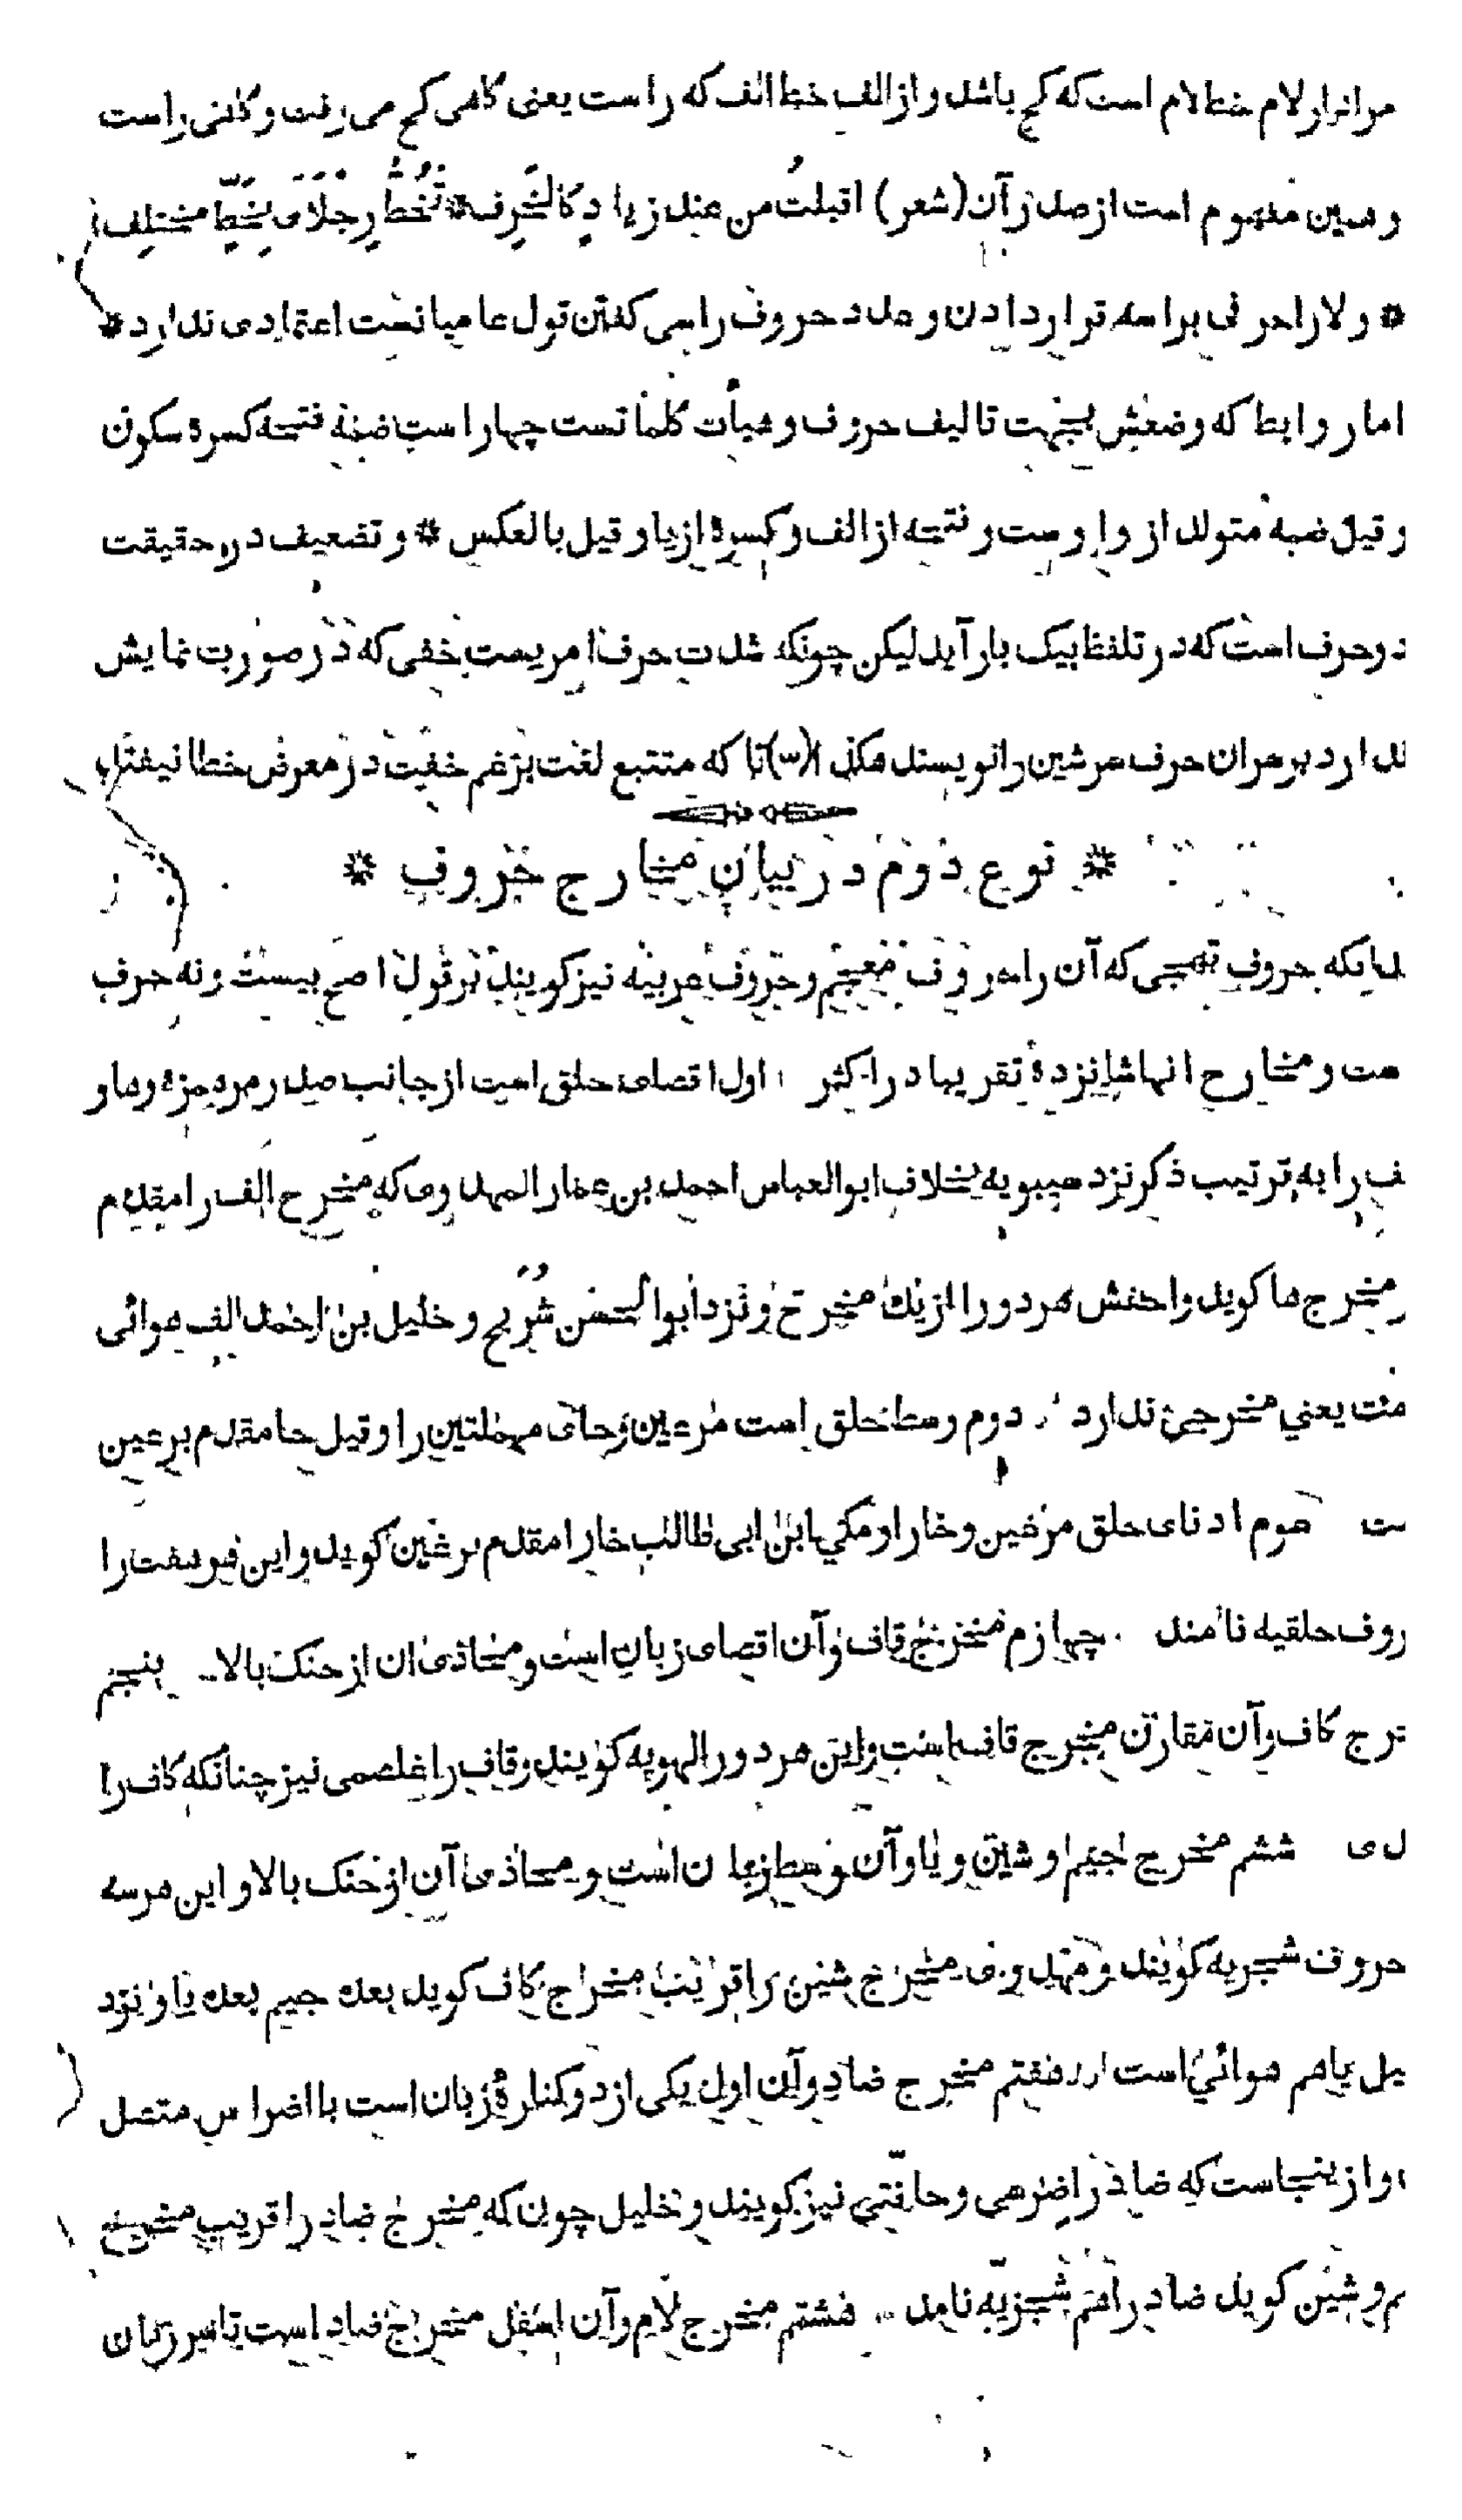 مراد از لام خط لام است که کج باشد و از الف خط الف که راست یعنی کاهی کج می رفت و کاهی راست
و همین مفهوم است از صدر آن (شعر) اقبلت من عند زیاد کالخرف * تخط رجلای بخط مختلف
* و لا را حرفی براسه قرار دادن و عدد حروف راسی کفتن قول عامیانست اعتمادی ندارد *
اما روابط که وضعش بجهت تالیف حروف و هیأت کلماتست چهار است ضمه فتحه کسره سکون
و قیل ضمه متولد از واوست و فتحه از الف و کسره از یا و قیل بالعکس * و تضعیف در حقیقت
دو حرف است که در تلفظ بیک بار آید لیکن چونکه شدت حرف امریست خفی که در صورت نمایش
ندارد بر سر ان حرف سر شین را نویسند هکذا (ــّـ) تا که متتبع لغت بزعم خفت در معرض خطا نیفتد
* نوع دوم در بیان مخارج حروف *
بدانکه حروف تهجی که آن را حروف معجم و حروف عربیه نیز کویند بر قول اصح بیست و نه حرف
است و مخارج انها شانزده تقریبا در اکثر اول اقصای حلق است از جانب صدر مر همزه و ها و
الف را به ترتیب ذکر نزد سیبویه بخلاف ابوالعباس احمد بن عمار المهدوی که مخرج الف را مقدم
بر مخرج ها کوید و اخفش هر دو را از یک مخرج و نزد ابوالحسن شریح و خلیل بن احمد الف هوائی
است یعنی مخرجی ندارد دوم وسط حلق است مر عین و حای مهملتین را و قیل حا مقدم بر عین
است سوم ادنای حلق مر غین و خا را و مکی ابن ابی طالب خا را مقدم بر غین کوید و این هر هفت را
حروف حلقیه نامند چهارم مخرج قاف و آن اقصای زبان است و محاذی ان از حنک بالا پنجم
مخرج کاف و آن مقارن مخرج قاف است و این هر دو را لهویه کویند و قاف را غلصمی نیز چنانکه کاف را
ششم مخرج جیم و شین و یا و آن وسط زبان است و محاذی آن از حنک بالا و این هر سه
حروف شجریه کویند و مهدوی مخرج شین را قریب مخرج کاف کوید بعده جیم بعده یا و نزد
خلیل یا هم هوائی است هفتم مخرج ضاد و آن اول یکی از دو کناره زبان است با اضراس متصل
و از ینجاست که ضاد را ضرسی و حافتی نیز کویند و خلیل چون که مخرج ضاد را قریب مخرج
جیم و شین کوید ضاد را هم شجریه نامد هشتم مخرج لام و آن اسفل مخرج ضاد است تا سر زبان